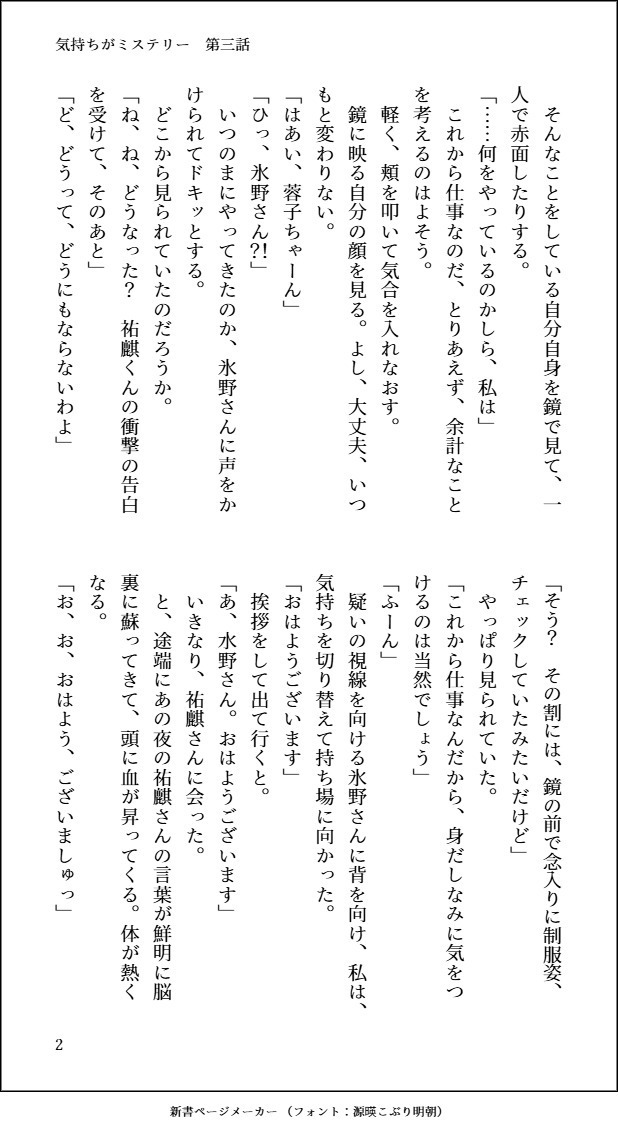 気持ちがミステリー　第三話
　そんなことをしている自分自身を鏡で見て、一
人で赤面したりする。
「……何をやっているのかしら、私は」
　これから仕事なのだ、とりあえず、余計なこと
を考えるのはよそう。
　軽く、頬を叩いて気合を入れなおす。
　鏡に映る自分の顔を見る。よし、大丈夫、いつ
もと変わりない。
「はあい、蓉子ちゃーん」
「ひっ、氷野さん?!」
　いつのまにやってきたのか、氷野さんに声をか
けられてドキッとする。
　どこから見られていたのだろうか。
「ね、ね、どうなった？　祐麒くんの衝撃の告白
を受けて、そのあと」
「ど、どうって、どうにもならないわよ」
「そう？　その割には、鏡の前で念入りに制服姿、
チェックしていたみたいだけど」
　やっぱり見られていた。
「これから仕事なんだから、身だしなみに気をつ
けるのは当然でしょう」
「ふーん」
　疑いの視線を向ける氷野さんに背を向け、私は、
気持ちを切り替えて持ち場に向かった。
「おはようございます」
　挨拶をして出て行くと。
「あ、水野さん。おはようございます」
　いきなり、祐麒さんに会った。
　と、途端にあの夜の祐麒さんの言葉が鮮明に脳
裏に蘇ってきて、頭に血が昇ってくる。体が熱く
なる。
「お、お、おはよう、ございましゅっ」
2
新書ページメーカー（フォント：源暎こぶり明朝）